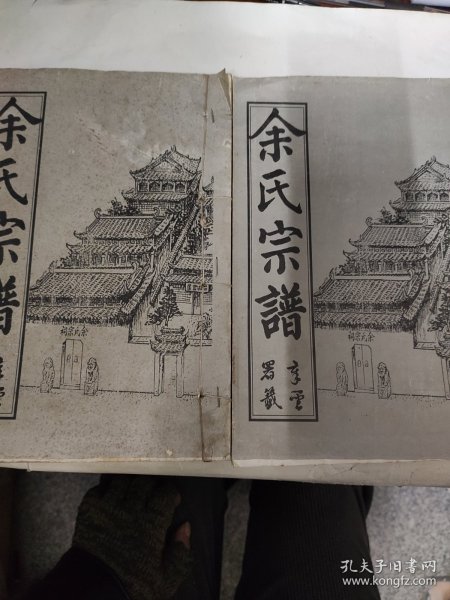 余氏宗譜
余氏宗譜
余氏宗祠
孔夫子旧书网
www.kongfz.com